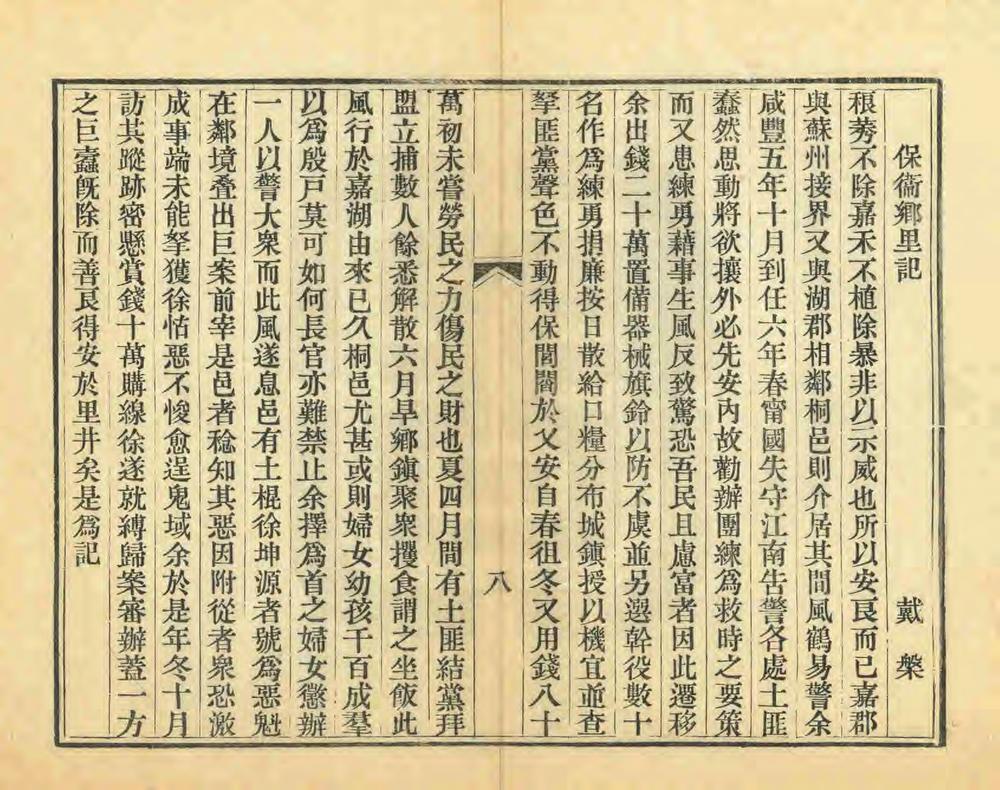 保衞鄉里記 戴槃
稂莠不除嘉禾不植除暴非以示威也所以安良而已嘉郡
與蘇州接界又與湖郡相鄰桐邑則介居其間風鶴易警余
咸豐五年十月到任六年春甯國失守江南告警各處土匪
蠢然思動將欲攘外必先安內故勸辦團練爲救時之要策
而又患練勇藉事生風反致驚恐吾民且慮富者因此遷移
余出錢二十萬置備器械旗鈴以防不虞並另選幹役數十
名作爲練勇捐廉按日散給口糧分布城鎭授以機宜並查
拏匪黨聲色不動得保閭閻於乂安自春徂冬又用錢八十
八
萬初未嘗勞民之力傷民之財也夏四月間有土匪結黨拜
盟立捕數人餘悉解散六月旱鄉鎭聚衆攫食謂之坐飯此
風行於嘉湖由來已久桐邑尤甚或則婦女幼孩千百成羣
以爲殷戸莫可如何長官亦難禁止余擇爲首之婦女懲辦
一人以警大衆而此風遂息邑有土棍徐坤源者號爲惡魁
在鄰境叠出巨案前宰是邑者稔知其惡因附從者衆恐激
成事端未能拏獲徐怙惡不悛愈逞鬼域余於是年冬十月
訪其蹤跡密懸賞錢十萬購線徐遂就縛歸案審辦蓋一方
之巨蠹旣除而善良得安於里井矣是爲記